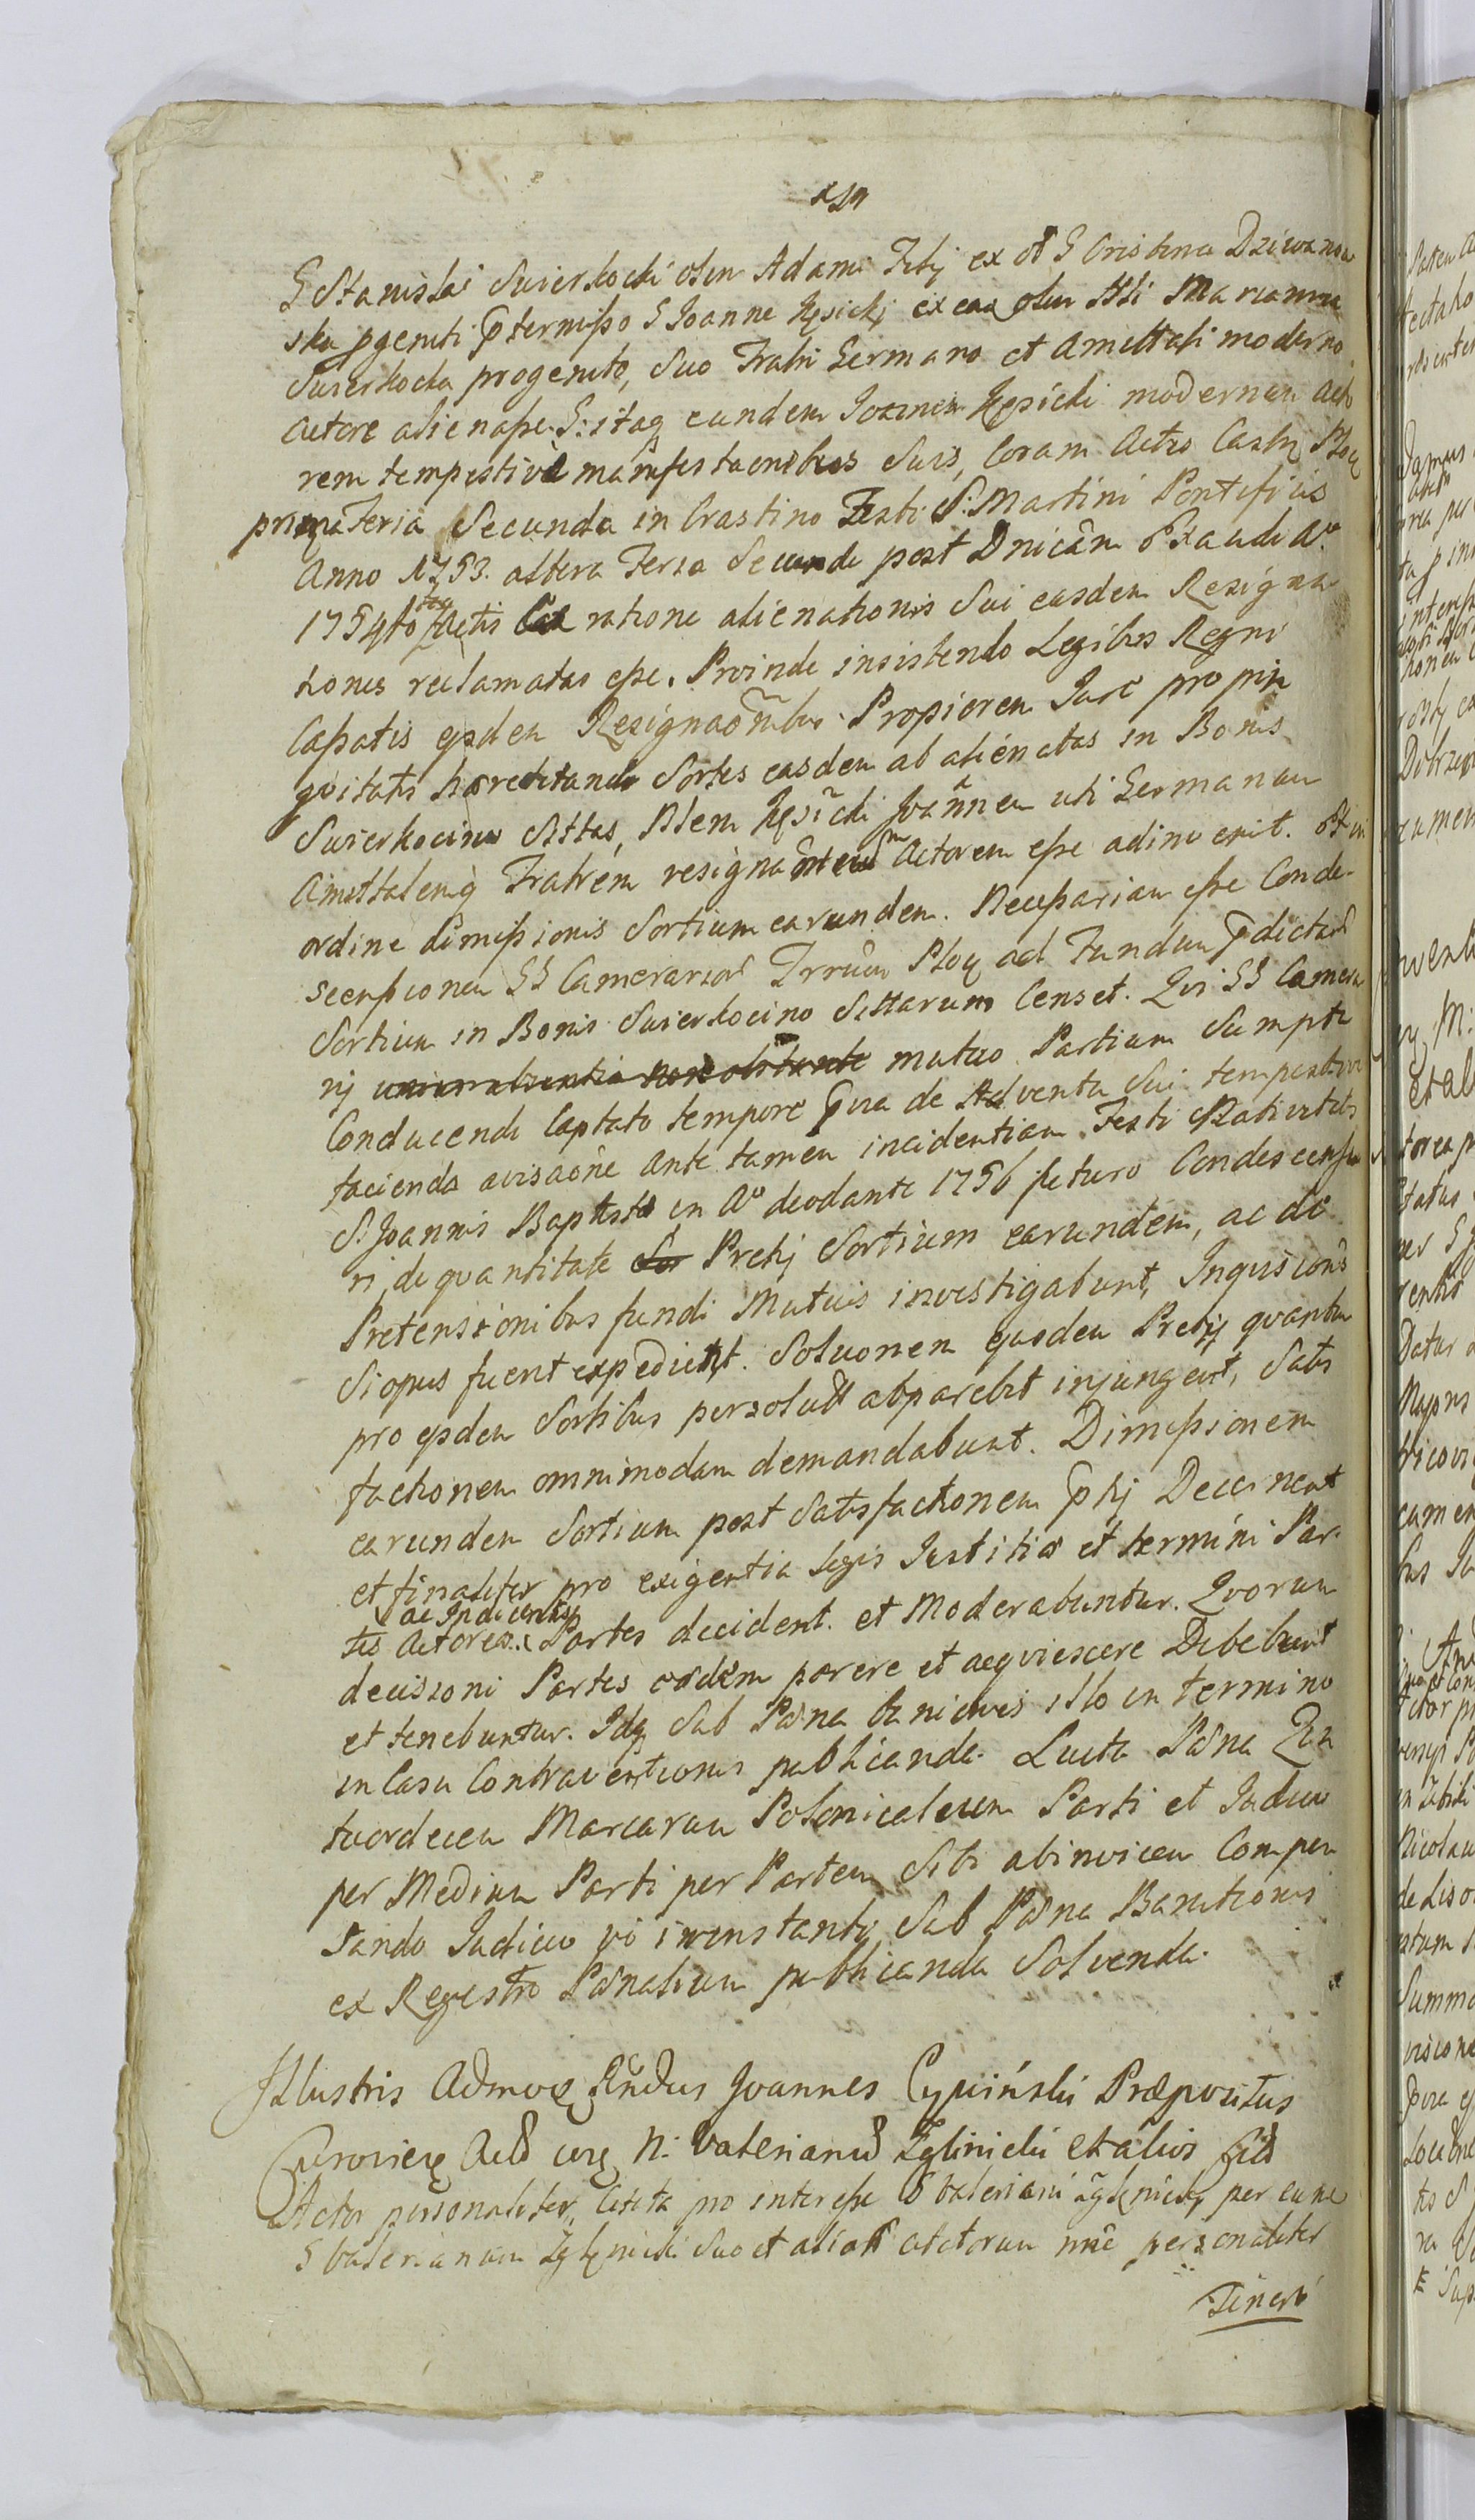 G Stanislai Swierkocki olim Adami Filij ex olt G Cristina Dziwanow
ska pgeniti p̄termisso G Joanne Kęsicki ex eaa olim Ali Marianna
Swierkocka progenito, Suo Fratri Germano et Amittali moderno
Actore alienasse. G: itaq eundem Joannem Kęsicki modernum Acto
rem tempestive manifestaonibus Suis, Coram Actis Castri Ploc
prima Feria Secunda in Crastino Festi S: Martini Pontificis
Anno 1753. altera Feria Secunda post Dnicam Exaudi Ao
1754to Actis ratione alienationis Sui easdem Resigna
tiones reclamatas esse. Proinde insistendo Legibus Regni
Cassatis eisdem Resignaonibus Propiorem Jure propin
qvitatis hæreditandi Sortes easdem ab alienatas in Bonis
Swierkocino Sittas, Nlem Kęsicki Joannem uti Germanum
Amittalemq Fratrem resignantium Actorem esse adinvenit. Et in
ordine dimissionis Sortium earundem. Necessariam esse Conde-
scensionem GG Camerarior Trrum Ploc ad Fundum p̄dictar
Sortium in Bonis Swierkocino Sittarum Censet. Qvi GG Camera
rij mutuo Partium Sumptu
Conducendi Captato tempore p̄via de Adventu Sui tempestive
facienda avisaone ante tamen incidentiam Festi Nativitatis
S: Joannis Baptistæ in Ao deodante 1756 futuro Condescensu
ri, de qvantitate Pretij Sortium earundem, ac de
Pretensionibus fundi Mutuis investigabunt, Inqvisiones
Si opus fuerit expedient. Solvonem ejusdem Pretij qvantum
pro eisdem Sortibus persoluti apparebit injungent, Satis
factionem omnimodam demandabunt. Dimissionem
earundem Sortium post Satisfactionem p̄tij Decernent
et finaliter pro exigentia legis Justitiæ et termini Par
ac Indicentis
tes Actoreæ Partes decident. et Moderabuntur. Qvorum
decisioni Partes eædem parere et acqviescere Debebunt
et tenebuntur. Idq Sub Pœna banicionis illo in termino
in Casu Contraventionis publicanda. Lucta Pœna Qva
tuordecem Marcarum Polonicalium Parti et Judicio
per Medium Parti per Partem Sibi abinvicem Compen
sando Judicio vo in instanti Sub Pœna Banitionis
ex Regestro Pœnalium publicanda Solvenda.
Illustris Admodq Rndus Joannes Cypinski Præpositus
N: Valerianum Zglinicki et alios Citt
Actor personaliter, Citata pro interesse G Valeriani Zglinicki per eund
G Valerianum Zglinicki Suo et alior Citatorum nne personaliter
Tenero